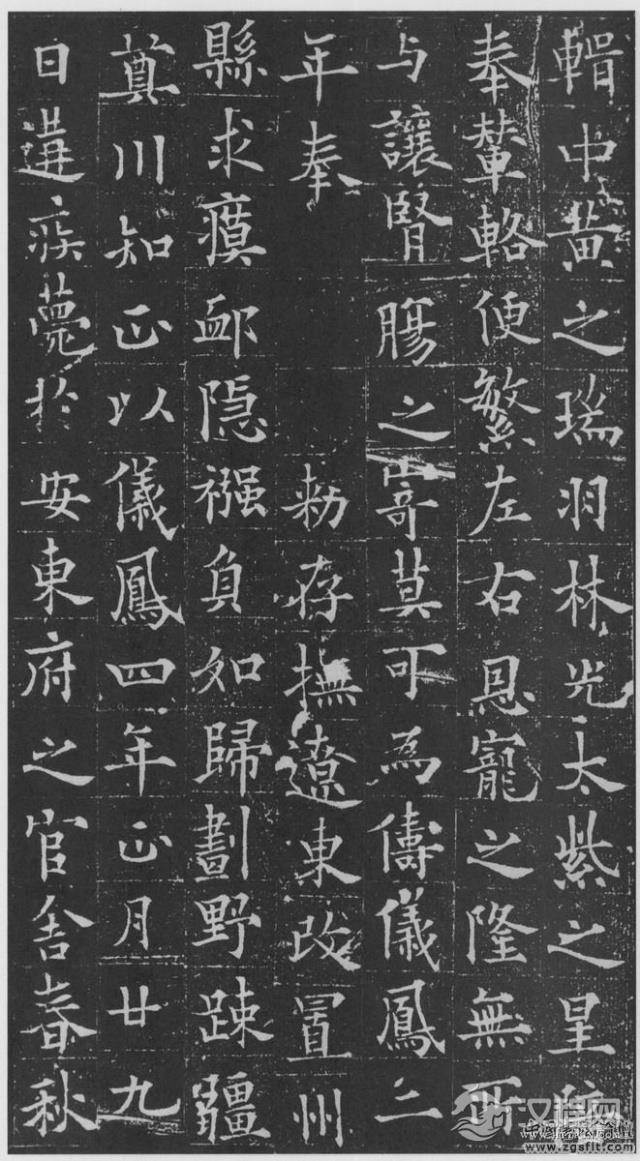 輯中黃之瑞羽林光太紫之星陪
奉輦輅便繁左右恩寵之隆無所
与讓腎腸之寄莫可為儔儀鳳二
年奉 勑存撫遼東改置州
縣求瘼卹隱襁負如歸劃野疎疆
奠川知正以儀鳳四年正月廿九
日遘疾薨於安東府之官舍春秋
汉程网
www.zgsflt.com